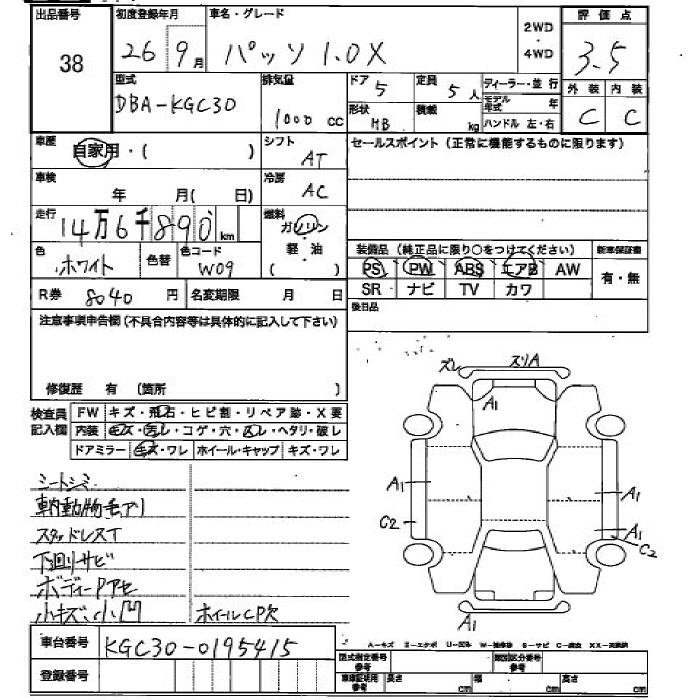 出品番号 初度登録年月 車名・グレード 2WD・4WD 評価点
38 26 9月 パッソ 1.0X 3.5
型式 排気量 ドア 5 定員 5人 ディーラー・並行 外装 内装
DBA-KGC30 1000 cc 形状 HB 積載 kg モデル年式 年 C C
ハンドル 左・右
車歴 自家用・( ) シフト AT セールスポイント(正常に機能するものに限ります)
車検 年 月( 日) 冷房 AC
走行 14万6千890km 燃料 ガソリン
軽油
( )
色 ホワイト 色替 色コード W09 装備品(純正品に限り○をつけてください) 新車保証書
PS PW ABS エアB AW 有・無
R券 8040 円 名変期限 月 日 SR ナビ TV カワ
注意事項申告欄(不具合内容等は具体的に記入して下さい) 後日品
修復歴 有 (箇所 )
検査員記入欄 FW キズ・飛石・ヒビ割・リペア跡・X要
内装 キズ・汚レ・コゲ・穴・スレ・ヘタリ・破レ
ドアミラー キズ・ワレ ホイール・キャップ キズ・ワレ
シートシミ
車内動物毛アリ
スタッドレスT
下回リサビ
ボディーPアセ
小キズ、小凹 ホイールCP欠
ズレ スリA
A1
A1 A1
C2 A1
C2
A1
車台番号 KGC30-0195415
登録番号
型式指定番号 類別区分番号
車庫証明用参考 長さ cm 幅 cm 高さ cm